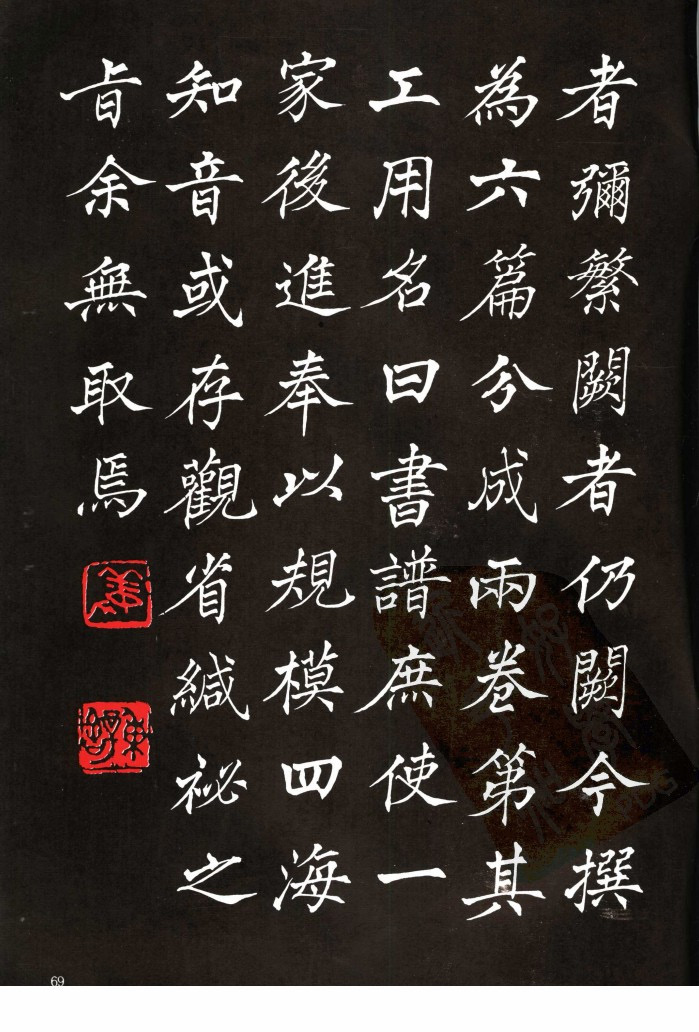 者彌繁闕者仍闕今撰
為六篇分成兩卷第其
工用名曰書譜庶使一
家後進奉以規模四海
知音或存觀省緘祕之
旨余無取焉
69